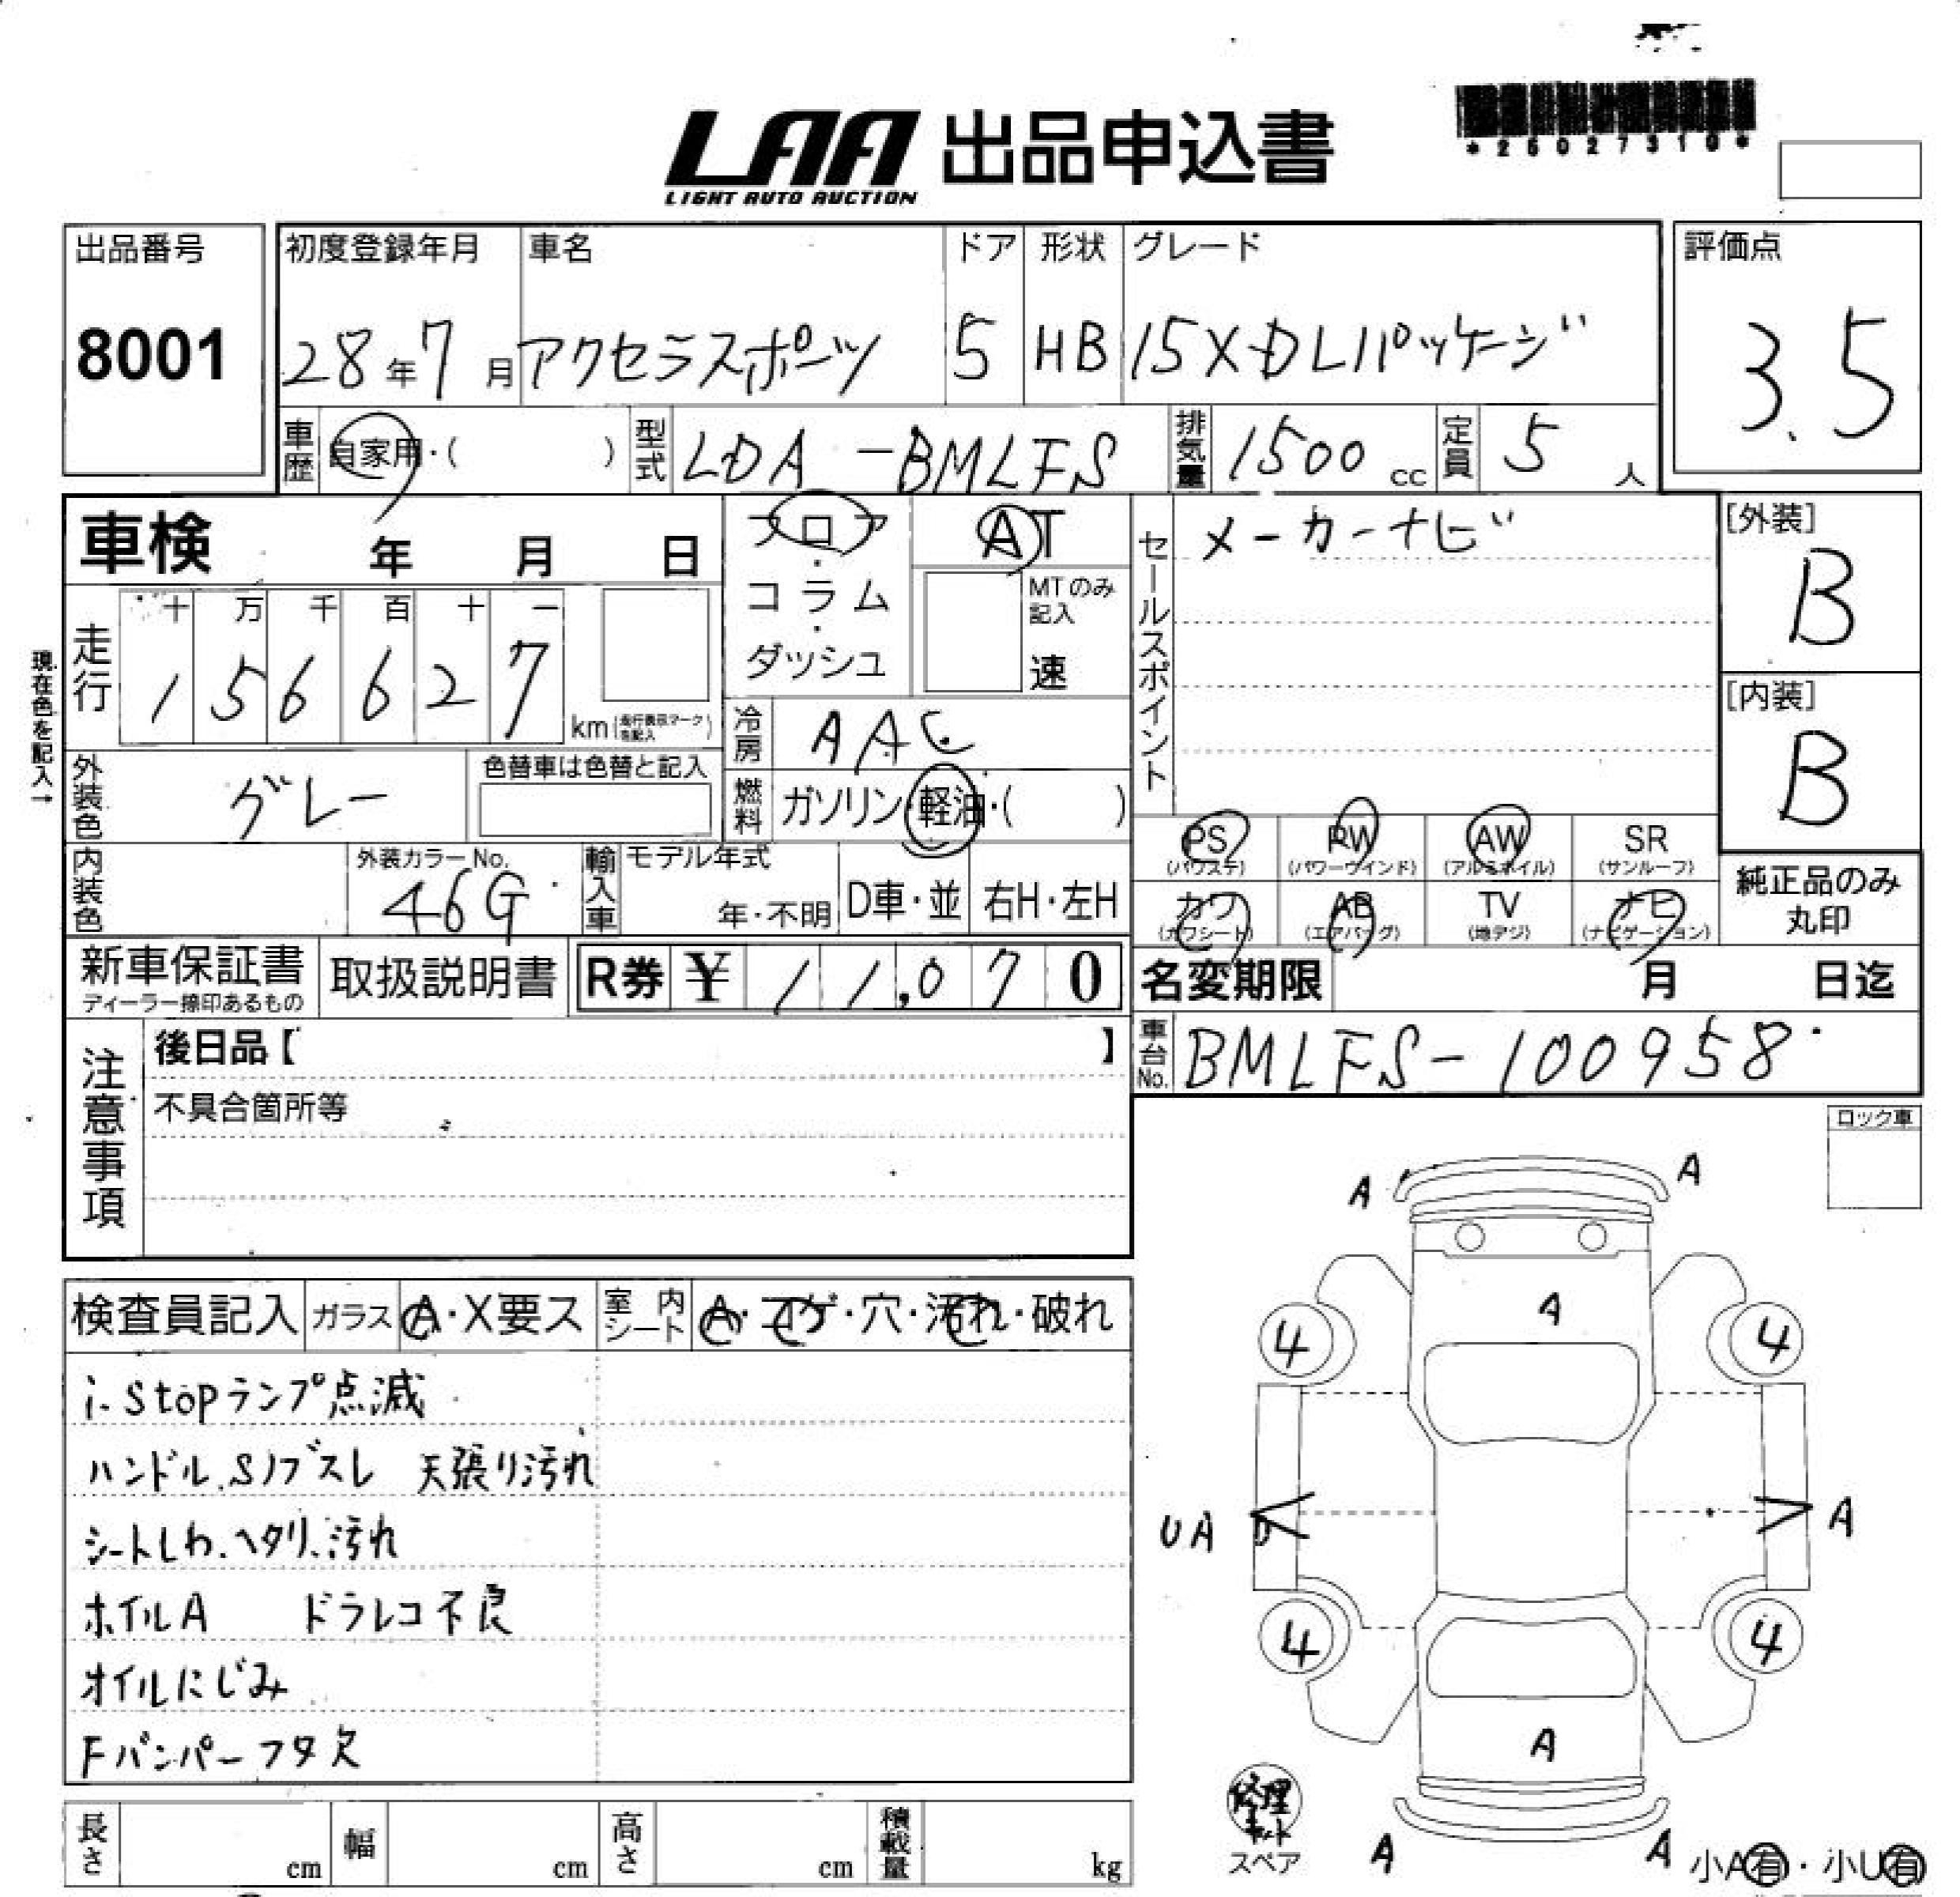 LAA 出品申込書
LIGHT AUTO AUCTION
*25027310*
出品番号
8001
初度登録年月 車名 ドア 形状 グレード
28年7月 アクセラスポーツ 5 HB 15XDLパッケージ
評価点
3.5
車歴 自家用・( ) 型式 LDA-BMLFS 排気量 1500cc 定員 5人
車検 年 月 日
フロア・コラム・ダッシュ
AT
MTのみ記入
速
セールスポイント
メーカーナビ
[外装]
B
[内装]
B
現在色を記入→
走行 十 万 千 百 十 一
1 5 6 6 2 7 km(走行表示マークを記入)
冷房 AAC
外装色 グレー 色替車は色替と記入
燃料 ガソリン・軽油・( )
内装色 外装カラーNo. 46G 輸入車 モデル年式 年・不明 D車・並 右H・左H
PS (パワステ) PW (パワーウインド) AW (アルミホイル) SR (サンルーフ)
カワ (カワシート) AB (エアバッグ) TV (地デジ) ナビ (ナビゲーション)
純正品のみ丸印
新車保証書 ディーラー捺印あるもの 取扱説明書 R券 ¥ 11,070
名変期限 月 日迄
車台No. BMLFS-100958
注意事項
後日品【 】
不具合箇所等
ロック車
検査員記入 ガラス A・X要ス 室内シート A・コゲ・穴・汚れ・破れ
i-stopランプ点滅
ハンドル.Sノブスレ 天張り汚れ
シートしわ.ヘタリ.汚れ
ホイルA ドラレコ不良
オイルにじみ
Fバンパーフタ欠
A A
A
4 4
UA A
4 4
A
修理キット
スペア
A A
小A有・小U有
長さ cm 幅 cm 高さ cm 積載量 kg